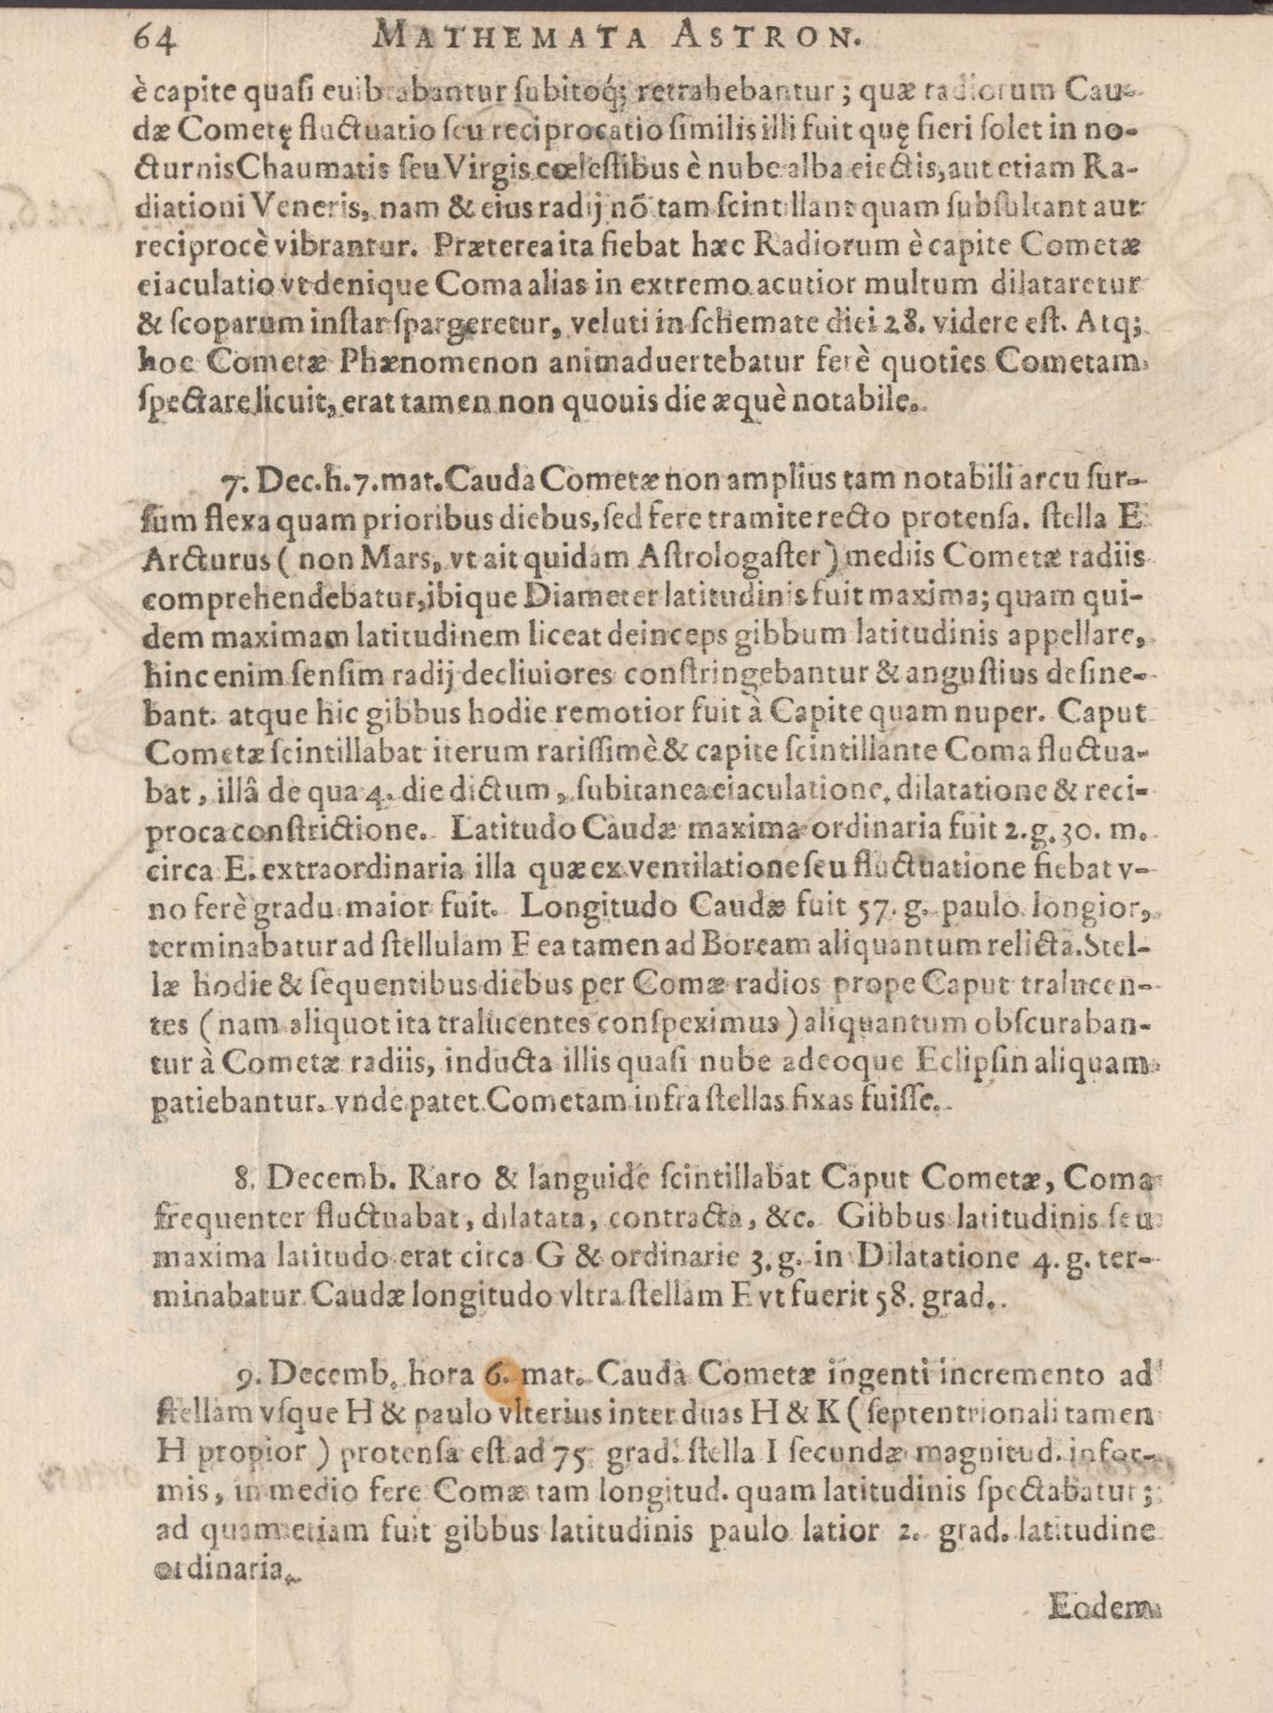 64 MATHEMATA ASTRON.
è capite quaſi euibrabantur ſubitoq́; retrahebantur; quæ radiorum Cau-
dæ Cometę fluctuatio ſeu reciprocatio ſimilis illi fuit quę fieri ſolet in no-
cturnis Chaumatis ſeu Virgis cœleſtibus è nube alba eiectis, aut etiam Ra-
diationi Veneris, nam & eius radij nõ tam ſcintillant quam ſubſultant aut
reciprocè vibrantur. Præterea ita fiebat hæc Radiorum è capite Cometæ
eiaculatio vt denique Coma alias in extremo acutior multum dilataretur
& ſcoparum inſtar ſpargeretur, veluti in ſchemate diei 28. videre eſt. Atq;
hoc Cometæ Phænomenon animaduertebatur ferè quoties Cometam
ſpectare licuit, erat tamen non quouis die æquè notabile.
7. Dec. h. 7. mat. Cauda Cometæ non amplius tam notabili arcu ſur-
ſum flexa quam prioribus diebus, ſed fere tramite recto protenſa. ſtella E
Arcturus ( non Mars, vt ait quidam Aſtrologaſter ) mediis Cometæ radiis
comprehendebatur, ibique Diameter latitudinis fuit maxima; quam qui-
dem maximam latitudinem liceat deinceps gibbum latitudinis appellare,
hinc enim ſenſim radij decliuiores conſtringebantur & anguſtius deſine-
bant. atque hic gibbus hodie remotior fuit à Capite quam nuper. Caput
Cometæ ſcintillabat iterum rariſſimè & capite ſcintillante Coma fluctua-
bat, illâ de qua 4. die dictum, ſubitanea eiaculatione, dilatatione & reci-
proca conſtrictione. Latitudo Caudæ maxima ordinaria fuit 2. g. 30. m.
circa E. extraordinaria illa quæ ex ventilatione ſeu fluctuatione fiebat v-
no ferè gradu maior fuit. Longitudo Caudæ fuit 57. g. paulo longior,
terminabatur ad ſtellulam F ea tamen ad Boream aliquantum relicta. Stel-
læ hodie & ſequentibus diebus per Comæ radios prope Caput tralucen-
tes ( nam aliquot ita tralucentes conſpeximus ) aliquantum obſcuraban-
tur à Cometæ radiis, inducta illis quaſi nube adeoque Eclipſin aliquam
patiebantur. vnde patet Cometam infra ſtellas fixas fuiſſe.
8. Decemb. Raro & languide ſcintillabat Caput Cometæ, Coma
frequenter fluctuabat, dilatata, contracta, &c. Gibbus latitudinis ſeu
maxima latitudo erat circa G & ordinarie 3. g. in Dilatatione 4. g. ter-
minabatur Caudæ longitudo vltra ſtellam F vt fuerit 58. grad.
9. Decemb. hora 6. mat. Cauda Cometæ ingenti incremento ad
ſtellam vſque H & paulo vlterius inter duas H & K ( ſeptentrionali tamen
H propior ) protenſa eſt ad 75 grad. ſtella I ſecundæ magnitud. infor-
mis, in medio fere Comæ tam longitud. quam latitudinis ſpectabatur;
ad quam etiam fuit gibbus latitudinis paulo latior 2. grad. latitudine
ordinaria.
Eodem